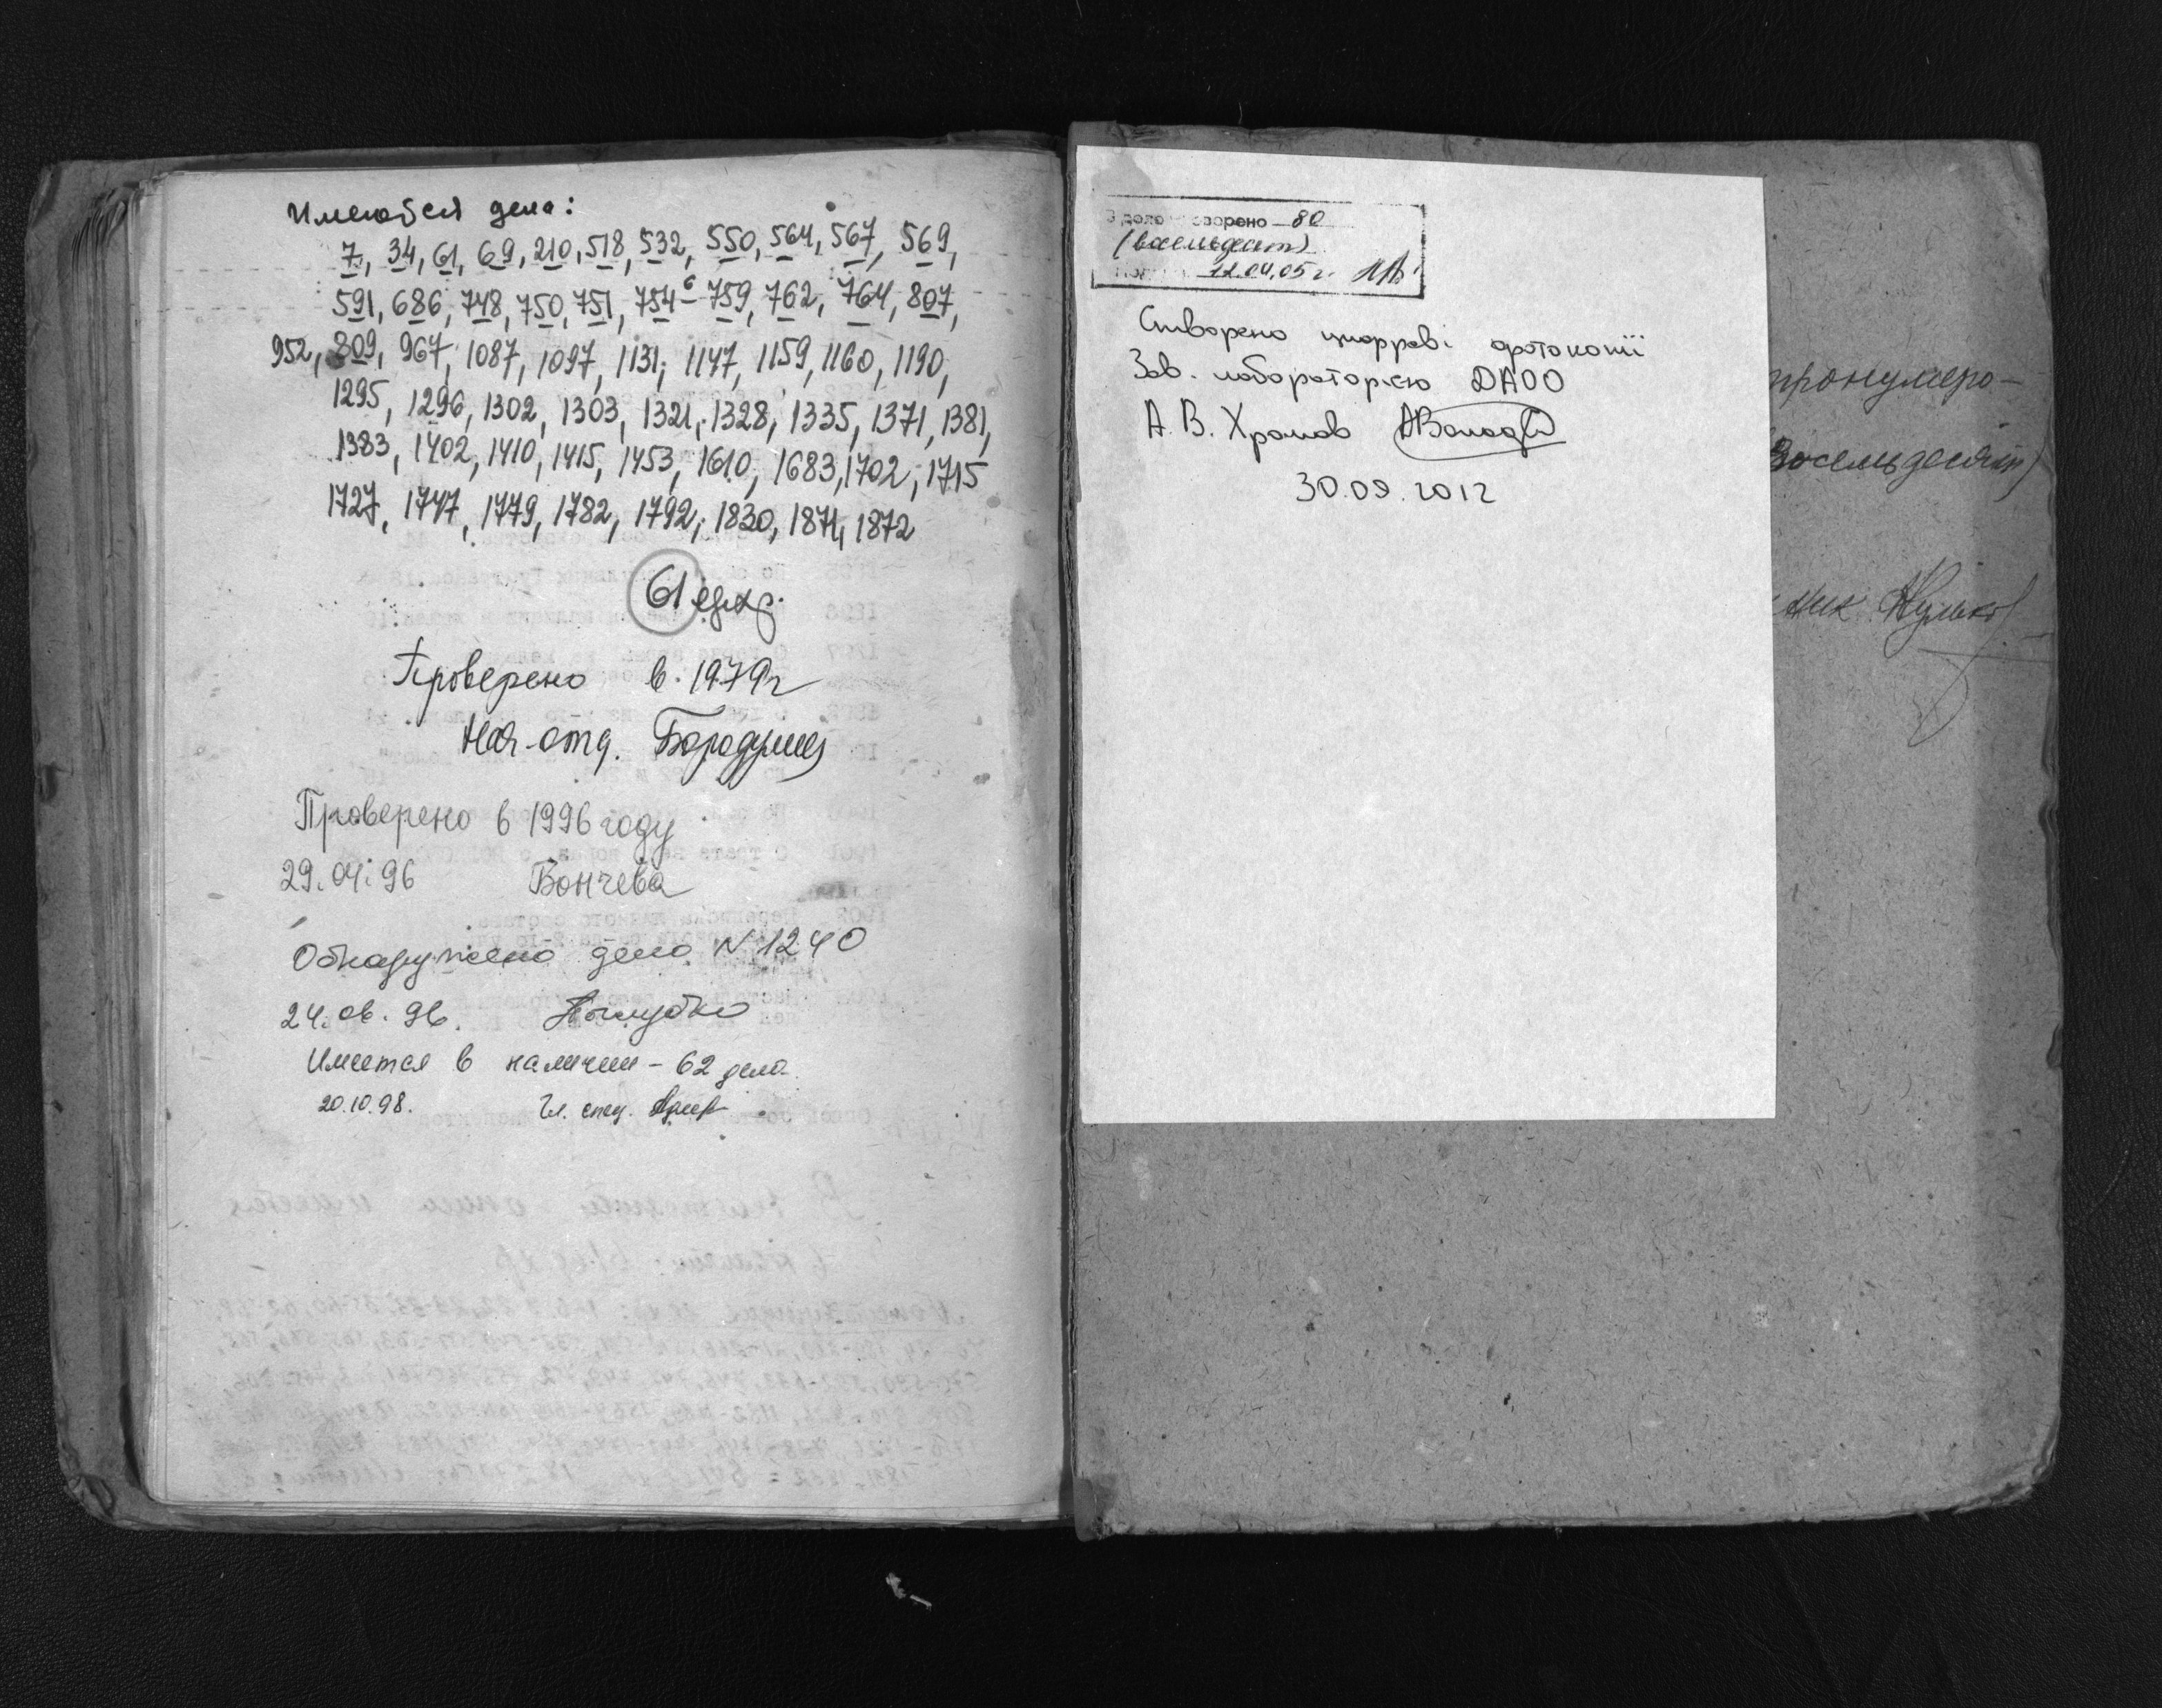 Имеются дела:
7, 34, 61, 69, 210, 518, 532, 550, 564, 567, 569,
591, 686, 748, 750, 751, 754-759, 762, 764, 807,
952, 809, 967, 1087, 1097, 1131, 1147, 1159, 1160, 1190,
1295, 1296, 1302, 1303, 1321, 1328, 1335, 1371, 1381,
1383, 1402, 1410, 1415, 1453, 1610, 1683, 1702, 1715
1727, 1747, 1779, 1782, 1792, 1830, 1871, 1872
61 ед.хр.
Проверено в 1979г
Нач-отд.
Проверено в 1996 году
29.04.96 Вончева
Обнаружено дело N 1240
24.06.96.
Имеется в наличии - 62 дела
20.10.98. Гл. спец.
80
(восемьдесят)
12.04.05 г.
Створено цифрові фотокопії
Зав. лабораторією ДАОО
А. В. Хромов
30.09.2012
пронумеро-
восемьдесят)